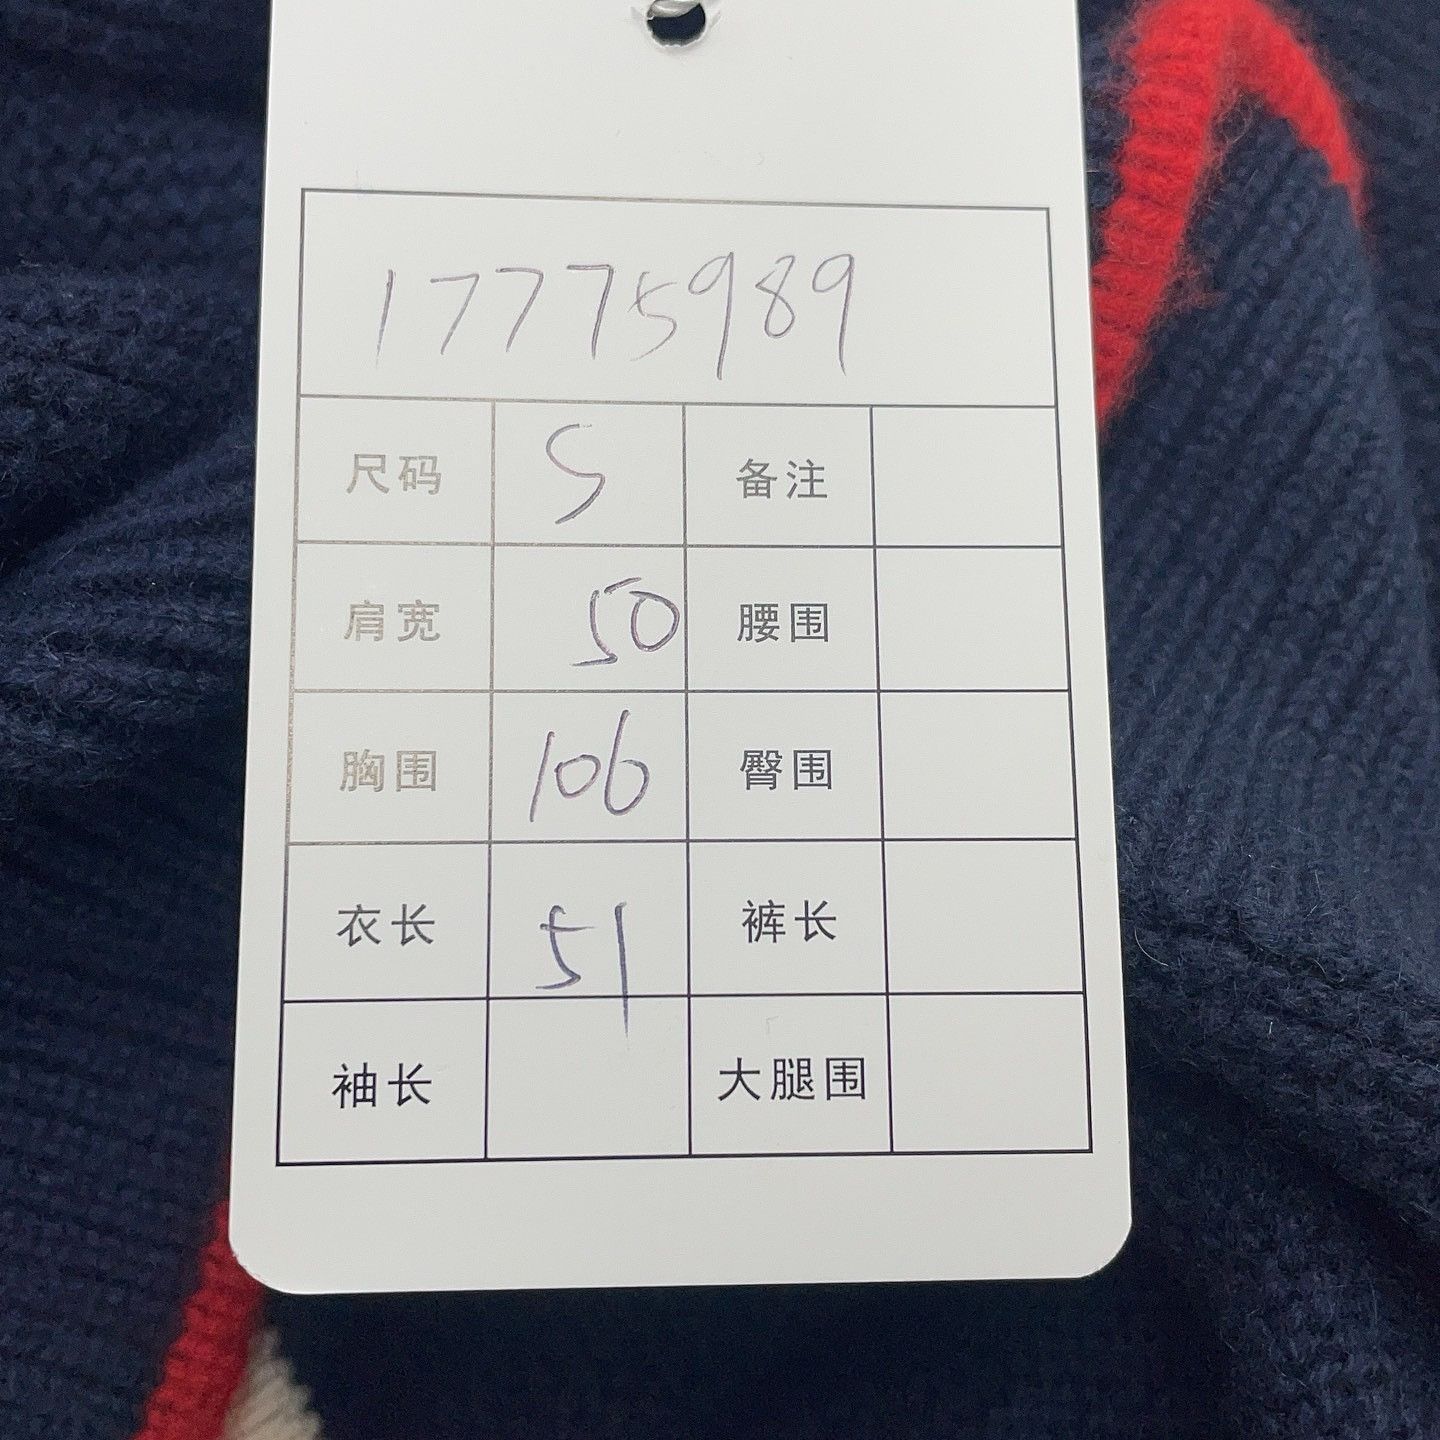 17775989
尺码 S 备注
肩宽 50 腰围
胸围 106 臀围
衣长 51 裤长
袖长 大腿围